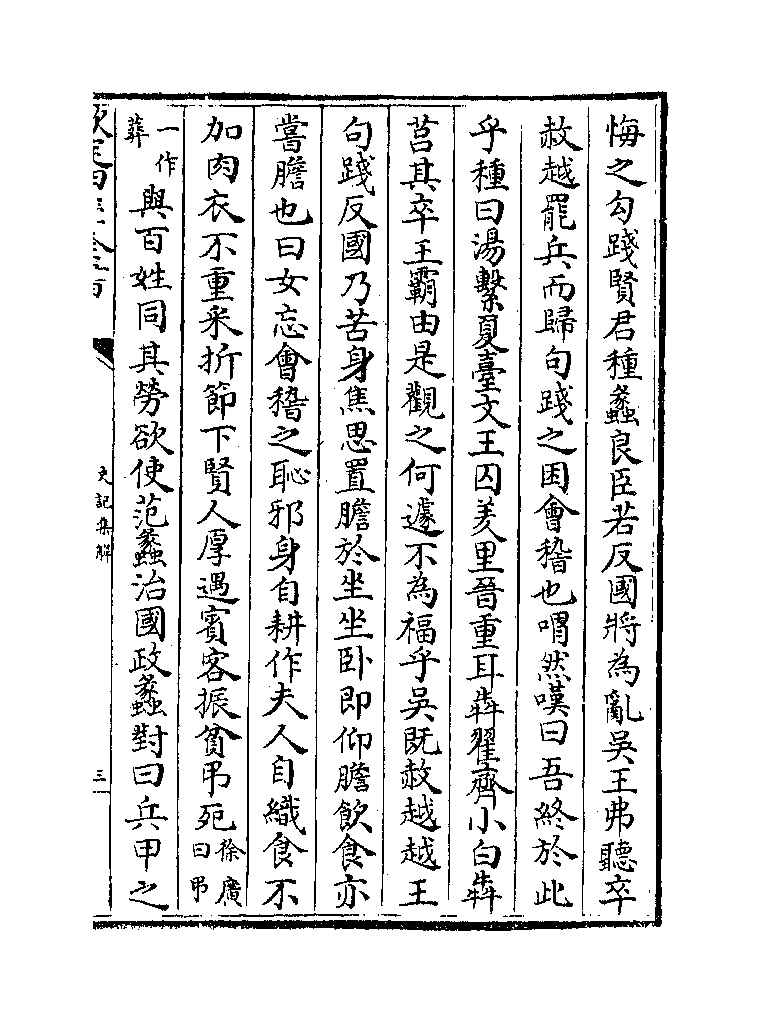 悔之勾踐賢君種蠡良臣若反國將為亂吳王弗聽卒
赦越罷兵而歸句踐之困會稽也喟然嘆曰吾終於此
乎種曰湯繫夏臺文王囚羑里晉重耳犇翟齊小白犇
莒其卒王霸由是觀之何遽不為福乎吳既赦越越王
句踐反國乃苦身焦思置膽於坐坐卧即仰膽飲食亦
嘗膽也曰女忘會稽之恥邪身自耕作夫人自織食不
加肉衣不重采折節下賢人厚遇賓客振貧弔死徐廣曰弔
一作葬與百姓同其勞欲使范蠡治國政蠡對曰兵甲之
史記集解
三